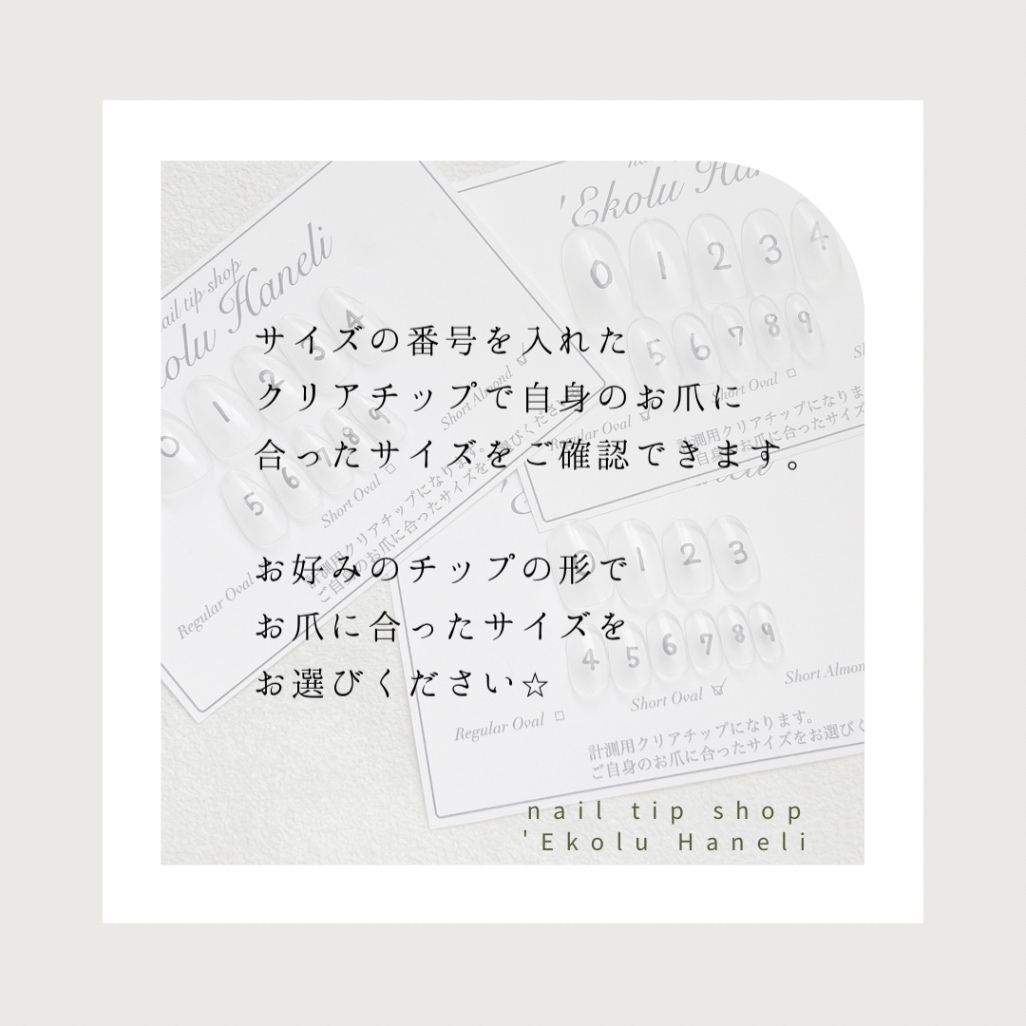 サイズの番号を入れた
クリアチップで自身のお爪に
合ったサイズをご確認できます。
お好みのチップの形で
お爪に合ったサイズを
お選びください☆
nail tip shop
'Ekolu Haneli
nail tip shop
Haneli
0 1 2 3 4
5 6 7 8 9
Regular Oval
Short Oval
Short Almond
計測用クリアチップになります。
'Ekolu
0 1 2 3 4
5 6 7 8 9
Regular Oval
Short Oval
計測用クリアチップになりま
0 1 2 3
4 5 6 7 8 9
Regular Oval
Short Oval
Short Almon
計測用クリアチップになります。
ご自身のお爪に合ったサイズをお選びく